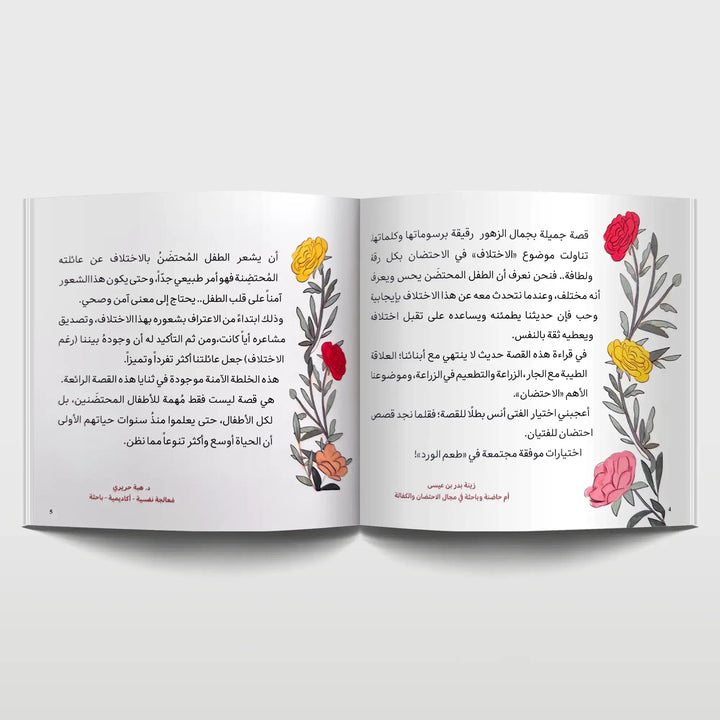 قصة جميلة بجمال الزهور رقيقة برسوماتها وكلماتها.
تناولت موضوع «الاختلاف» في الاحتضان بكل رقة
ولطافة.. فنحن نعرف أن الطفل المحتضَن يحس ويعرف
أنه مختلف، وعندما نتحدث معه عن هذا الاختلاف بإيجابية
وحب فإن حديثنا يطمئنه ويساعده على تقبل اختلافه
ويعطيه ثقة بالنفس.
في قراءة هذه القصة حديث لا ينتهي مع أبنائنا؛ العلاقة
الطيبة مع الجار، الزراعة والتطعيم في الزراعة، وموضوعنا
الأهم «الاحتضان».
أعجبني اختيار الفتى أنس بطلًا للقصة؛ فقلما نجد قصص
احتضان للفتيان.
اختيارات موفقة مجتمعة في «طعم الورد»!
زينة بدر بن عيسى
أم حاضنة وباحثة في مجال الاحتضان والكفالة
4
أن يشعر الطفل المُحتضَنُ بالاختلاف عن عائلته
المُحتضِنة فهو أمر طبيعي جدّاً، وحتى يكون هذا الشعور
آمناً على قلب الطفل.. يحتاج إلى معنى آمن وصحي.
وذلك ابتداءً من الاعتراف بشعوره بهذا الاختلاف، وتصديق
مشاعره أياً كانت، ومن ثم التأكيد له أن وجودهُ بيننا (رغم
الاختلاف) جعل عائلتنا أكثر تفرداً وتميزاً.
هذه الخلطة الآمنة موجودة في ثنايا هذه القصة الرائعة.
هي قصة ليست فقط مُهمة للأطفال المحتضَنين، بل
لكل الأطفال، حتى يعلموا منذُ سنوات حياتهم الأولى
أن الحياة أوسع وأكثر تنوعاً مما نظن.
د. هبة حريري
معالجة نفسية - أكاديمية - باحثة
5